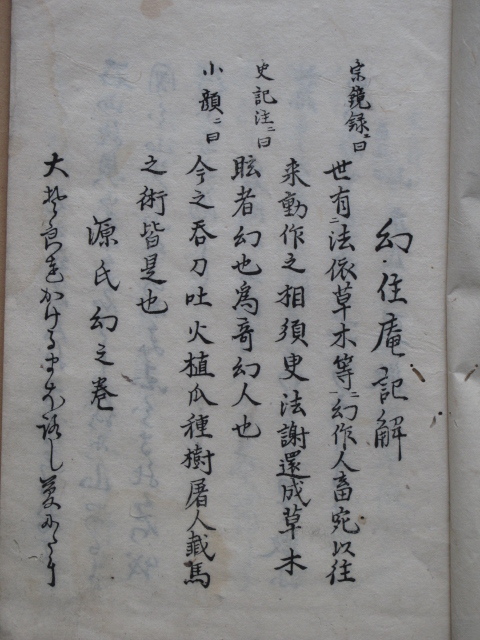 幻住庵記解
宗鏡録ニ曰
世有ニ法依草木等ニ幻作人畜宛以往
来動作之相須臾法謝還成草木
史記注ニ曰
眩者幻也爲奇幻人也
小顔ニ曰
今之呑刀吐火植瓜種樹屠人截馬
之術皆是也
源氏幻之巻
大そらをかけるまほろし夢にたに